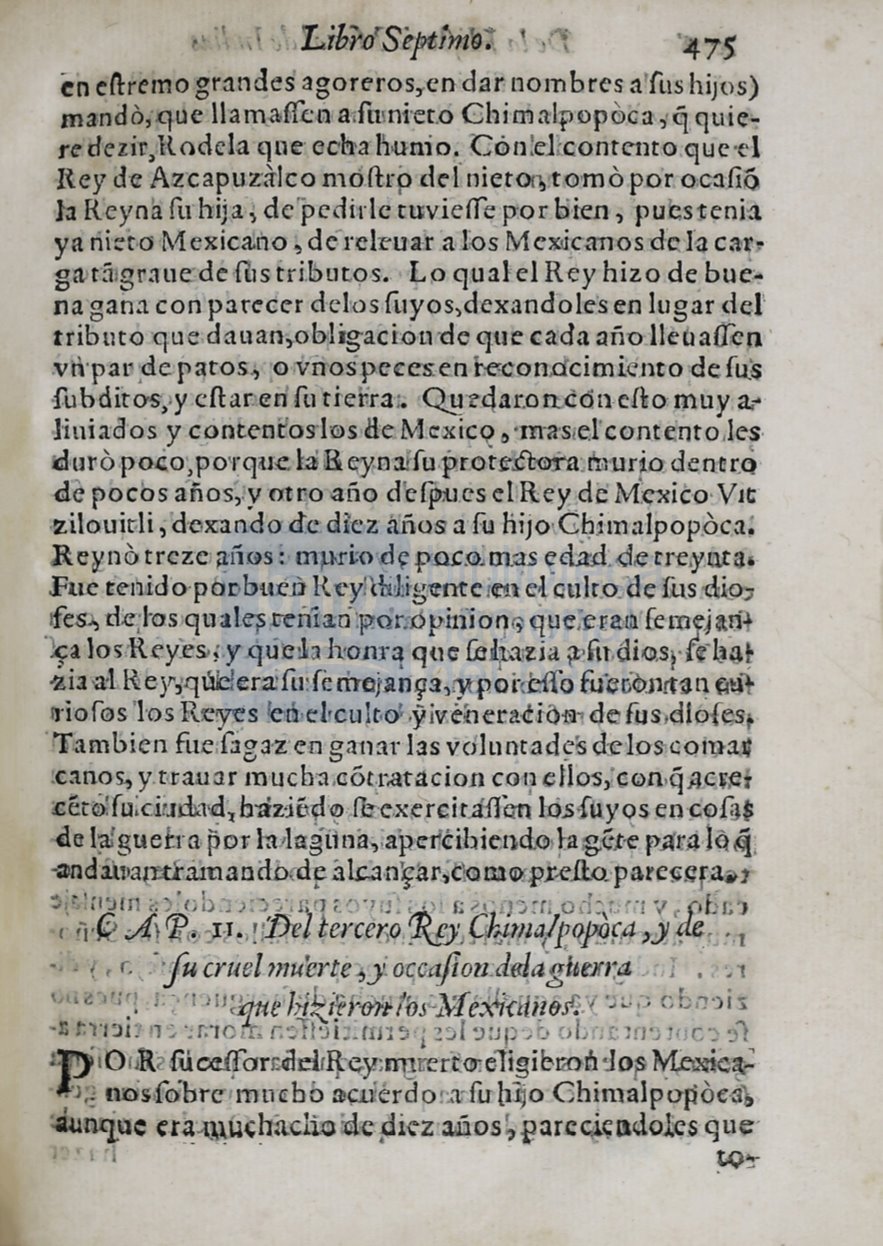 Libro Septimo. 475
en eſtremo grandes agoreros, en dar nombres a ſus hijos)
mandò, que llamaſſen a ſu nieto Chimalpopòca, q̃ quie-
re dezir, Rodela que echa humo. Con el contento que el
Rey de Azcapuzàlco moſtro del nieto, tomò por ocaſiõ
la Reyna ſu hija, de pedirle tuvieſſe por bien, pues tenia
ya nieto Mexicano, de releuar a los Mexicanos de la car-
ga tã graue de ſus tributos. Lo qual el Rey hizo de bue-
na gana con parecer delos ſuyos, dexandoles en lugar del
tributo que dauan, obligacion de que cada año lleuaſſen
vn par de patos, o vnos peces en reconocimiento de ſus
ſubditos, y eſtar en ſu tierra. Quedaron con eſto muy a-
liuiados y contentos los de Mexico, mas el contento les
durò poco, porque la Reyna ſu protectora murio dentro
de pocos años, y otro año deſpues el Rey de Mexico Vit
zilouitli, dexando de diez años a ſu hijo Chimalpopòca.
Reynò treze años: murio de poco mas edad de treynta.
Fue tenido por buen Rey diligente en el culto de ſus dio-
ſes, de los quales tenian por opinion, que eran ſemejan-
ça los Reyes, y que la honra que ſe hazia a ſu dios, ſe ha-
zia al Rey, que era ſu ſemejança, y por eſſo fueron tan cu-
rioſos los Reyes en el culto y veneracion de ſus dioſes.
Tambien fue ſagaz en ganar las voluntades de los comar
canos, y trauar mucha cõtratacion con ellos, con q̃ acre-
cẽto ſu ciudad, haziẽdo ſe exercitaſſen los ſuyos en coſas
de la guerra por la laguna, apercibiendo la gẽte para lo q̃
andauan tramando de alcançar, como preſto parecera.
C A P. 11. Del tercero Rey Chimalpopòca, y de
ſu cruel muerte, y occaſion dela guerra
que hizieron los Mexicanos.
POR ſuceſſor del Rey muerto eligieron los Mexica-
nos ſobre mucho acuerdo a ſu hijo Chimalpopòca,
aunque era muchacho de diez años, pareciendoles que
to-